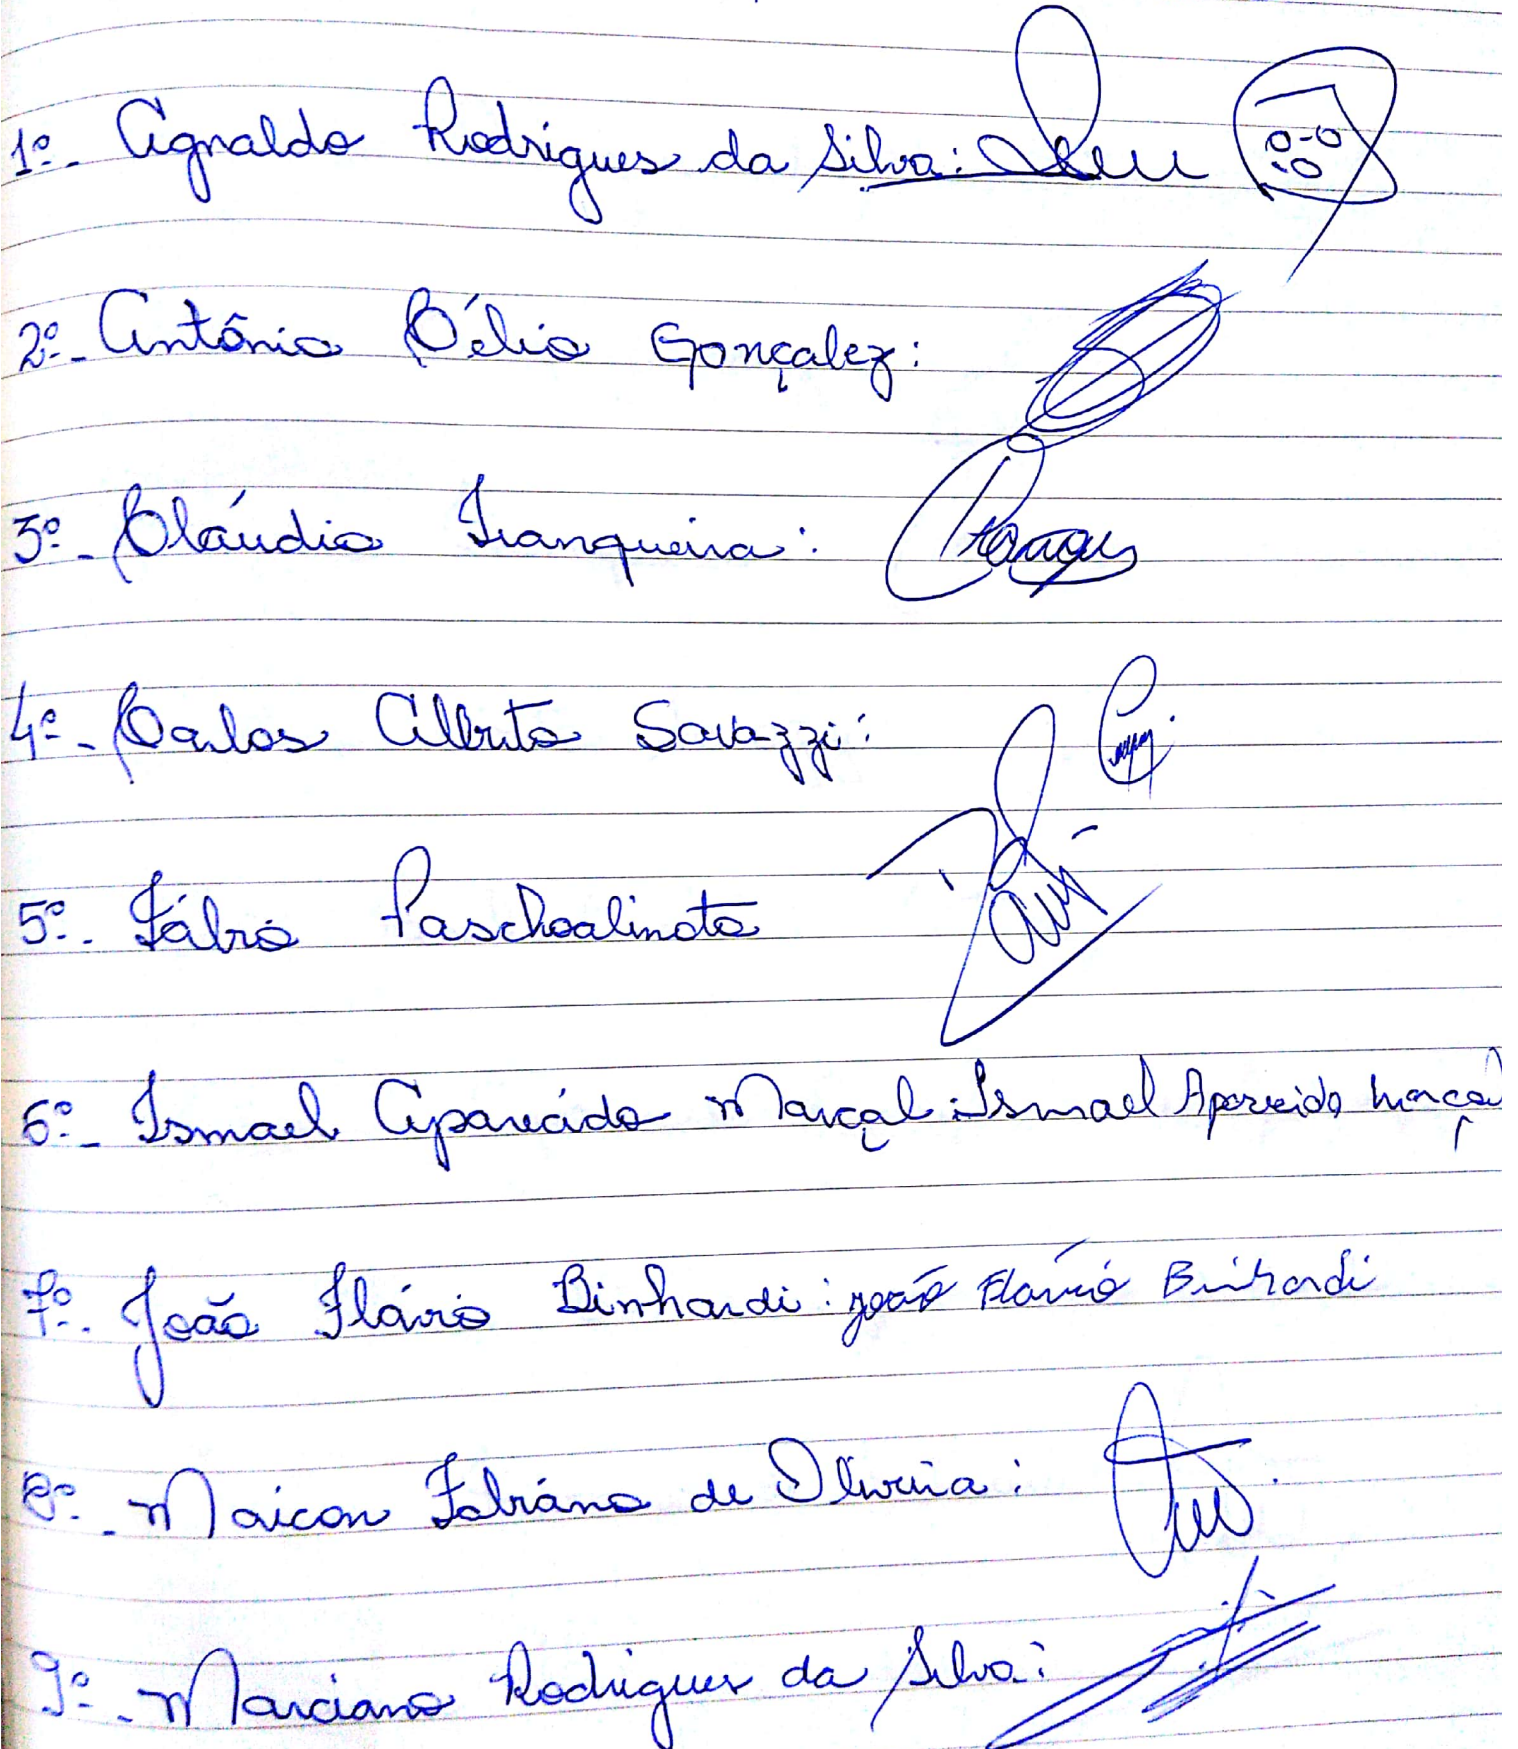 1º- Agnaldo Rodrigues da Silva:
2º- Antônio Célio Gonçalez:
3º- Cláudio Tranqueira:
4º- Carlos Alberto Savazzi:
5º- Fábio Paschoalinoto
6º- Ismael Aparecido Marçal: Ismael Aparecido Marçal
7º- João Flávio Binhardi: João Flávio Binhardi
8º- Maicon Fabiano de Oliveira:
9º- Marciano Rodrigues da Silva: